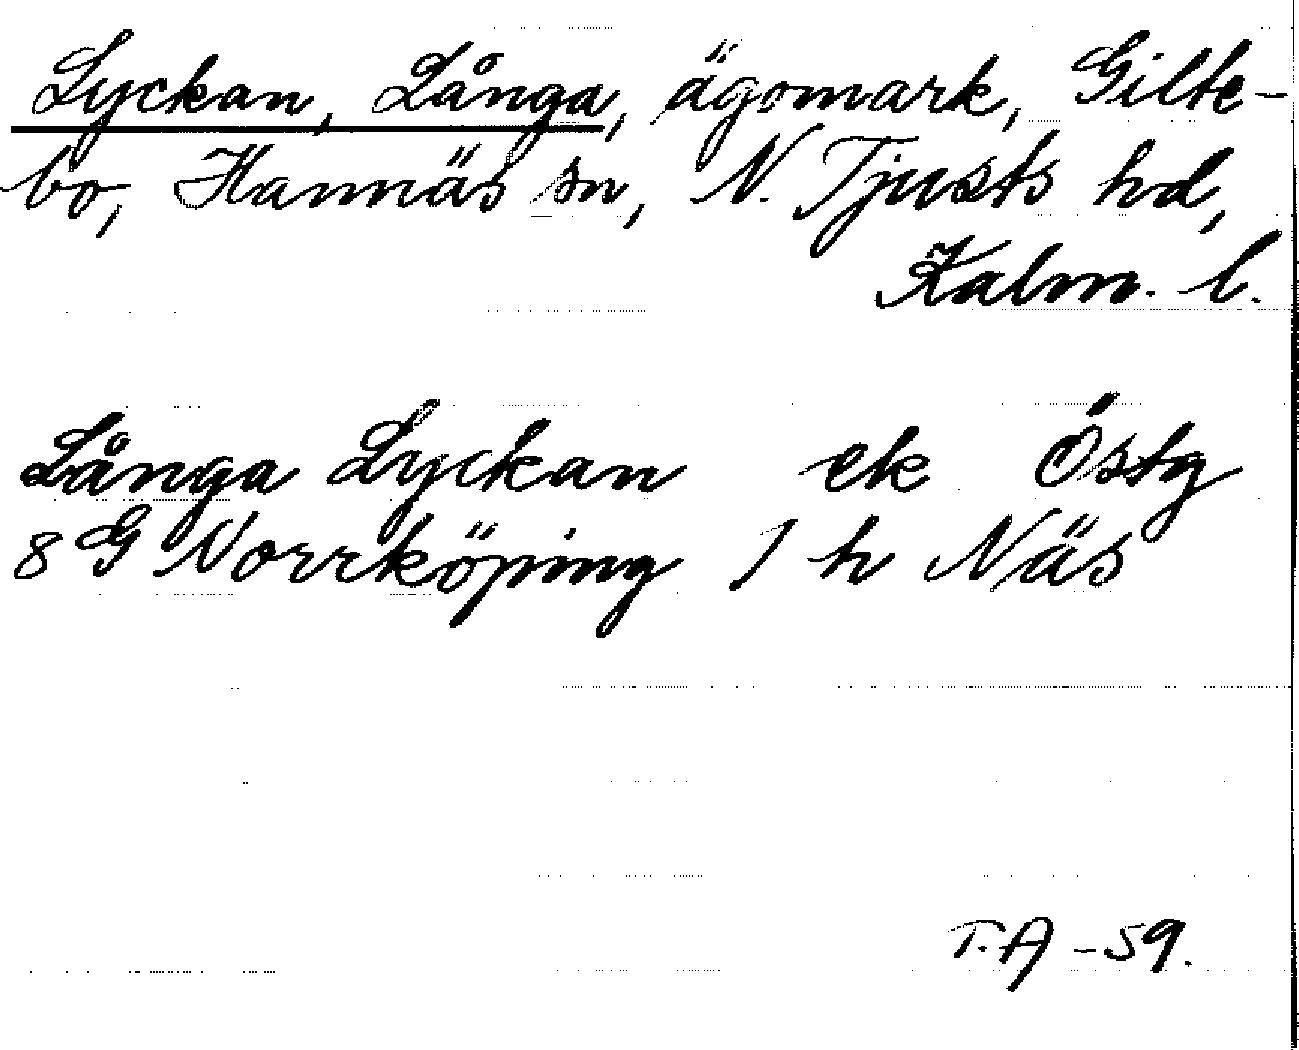 Lyckan, Långa, ägomark, Gilte-
bo, Hannäs sn, N. Tjusts hd,
Kalm. l.
Långa Lyckan ek Östg
8 G Norrköping 1 h Näs
T.A -59.